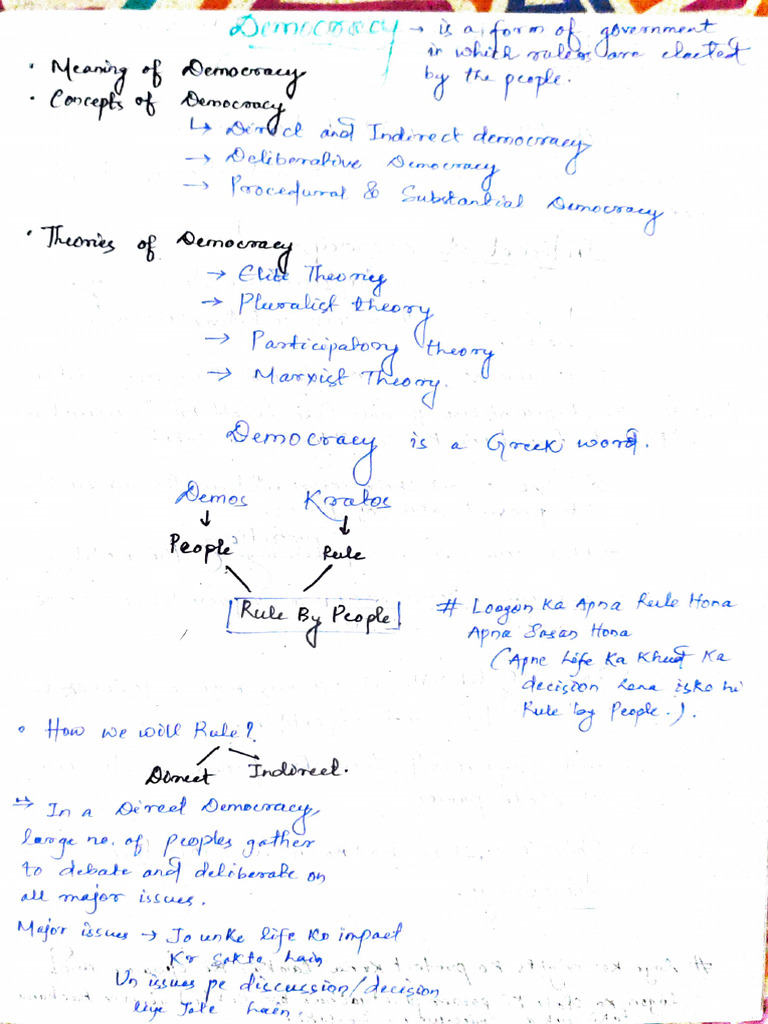 Democracy → is a form of government
in which rulers are elected
by the people.
• Meaning of Democracy
• Concepts of Democracy
↳ Direct and Indirect democracy
→ Deliberative Democracy
→ Procedural & Substantial Democracy
• Theories of Democracy
→ Elite Theories
→ Pluralist theory
→ Participatory theory
→ Marxist Theory.
Democracy is a Greek word.
Demos Kratos
↓ ↓
People Rule
Rule By People
# Loogon Ka Apna Rule Hona
Apna Sasan Hona
(Apne Life Ka Khud Ka
decision lena isko hi
Rule by People.).
• How we will Rule?
Direct Indirect.
→ In a Direct Democracy,
large no. of peoples gather
to debate and deliberate on
all major issues.
Major issues → Jo unke life ko impact
Kr Sakte hain
Un issues pe discussion/decision
liye Jate hain.